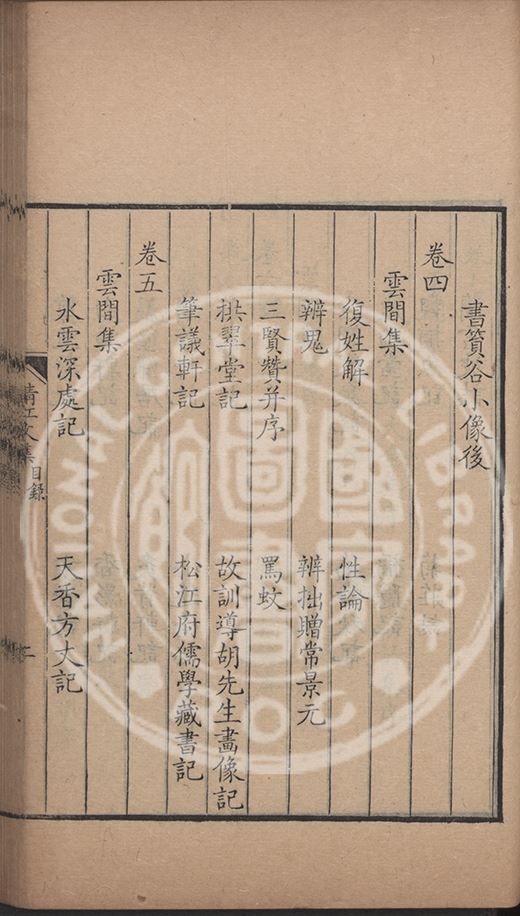 書篔谷小像後
卷四
雲間集
復姓解 性論
辨鬼 辨拙贈常景元
三賢贊并序 罵蚊
拱翠堂記 故訓導胡先生畫像記
筆議軒記 松江府儒學藏書記
卷五
雲間集
水雲深處記 天香方丈記
清江文集目錄 二